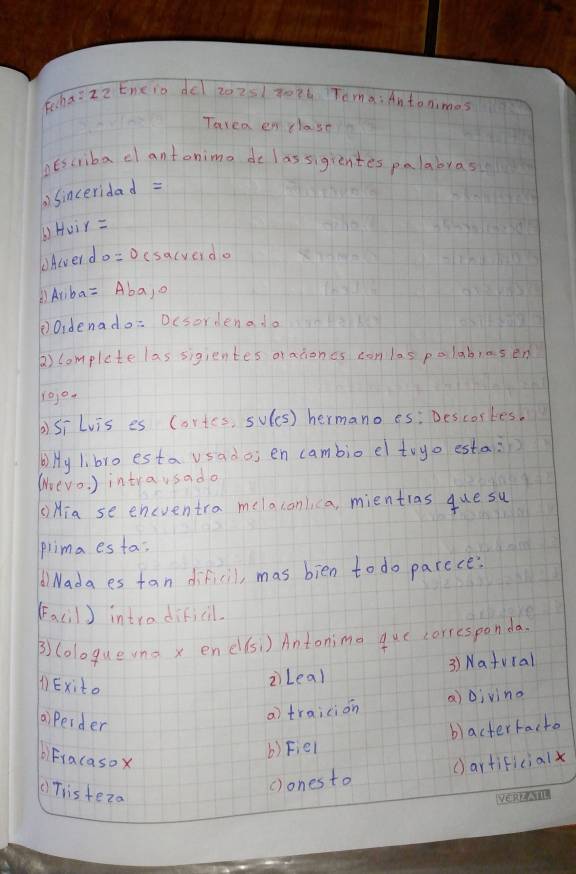 Fecha: 22 Enero del 2025/2026 Tema: Antonimos
Tarea en clase
1) Escriba el antonimo de las sigientes palabras
a) Sinceridad =
b) Huir =
c) Acuerdo = Desacuerdo
d) Ariba = Abajo
e) Ordenado = Desordenado
2) Complete las sigientes oraciones con las palabras en
rojo.
a) Si Luis es Cortes, su(es) hermano es: Descortes.
b) My libro esta usado; en cambio el tuyo esta:
(Nuevo.) intrausado
c) Mia se encuentra melaconlica, mientras que su
prima esta:
d) Nada es tan dificil, mas bien todo parece:
(Facil) intradificil.
3) Coloque una x en el(si) Antonimo que corresponda.
1) Exito
2) Leal
3) Natural
a) Perder
a) traición
a) Divino
b) Fracaso x
b) Fiel
b) acterfacto
c) Tristeza
c) onesto
c) artificial x
VERZATIL